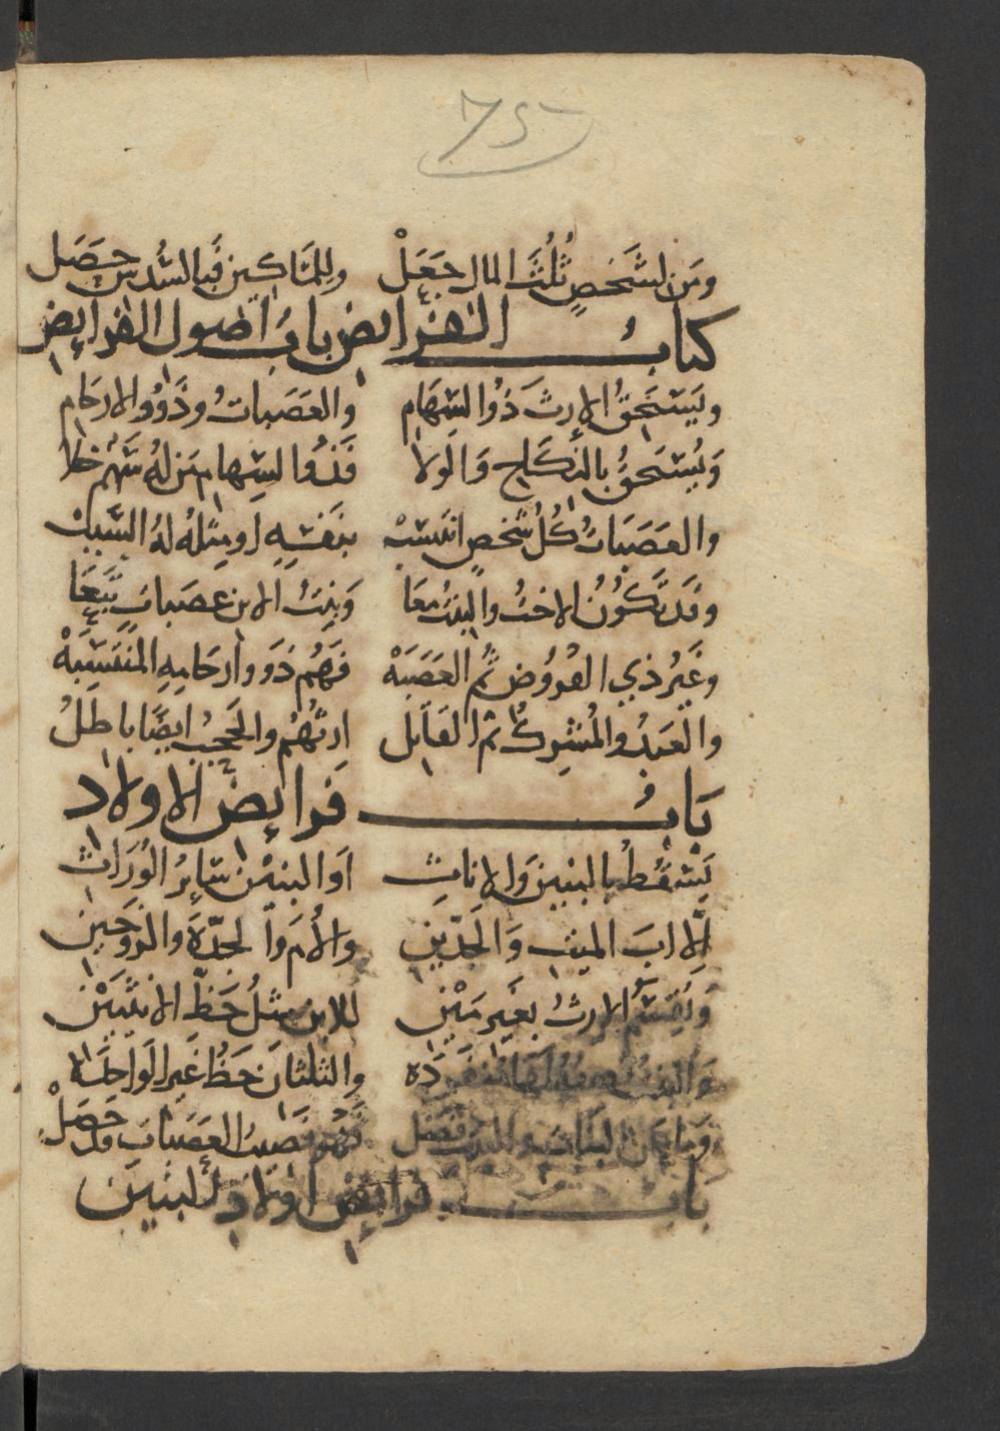 ومن لشخص ثلث المال جعل وللمساكين فبالسدس حصل
كتاب الفرايض باب اصول الفرايض
ويستحق الارث ذوا السهام والعصبات وذووا الارحام
ويستحق بالنكاح والولا فذوا السهام من له سهم خلا
والعصبات كل شخص انتسب بنفسه او مثله له السبب
وقد تكون الاخت والبنت معا وبنت الابن عصبات تبعا
وغير ذي الفروض ثم العصبه فهم ذوو وارحامه المنتسبه
والعبد والمشرك ثم القاتل ارثهم والحجب ايضا باطل
باب فرايض الاولاد
يسقط بالبنين والاناث او البنين ساير الوراث
الا اب الميت والجدين والام والجدة والزوجين
ويقسم الارث بغير مين للابن مثل حظ الانثيين
والبنت نصف لها منفرده والثلثان حظ غير الواحده
وما من البنات والبنت فضل فهو نصيب العصبات قد حصل
باب فرايض اولاد البنين